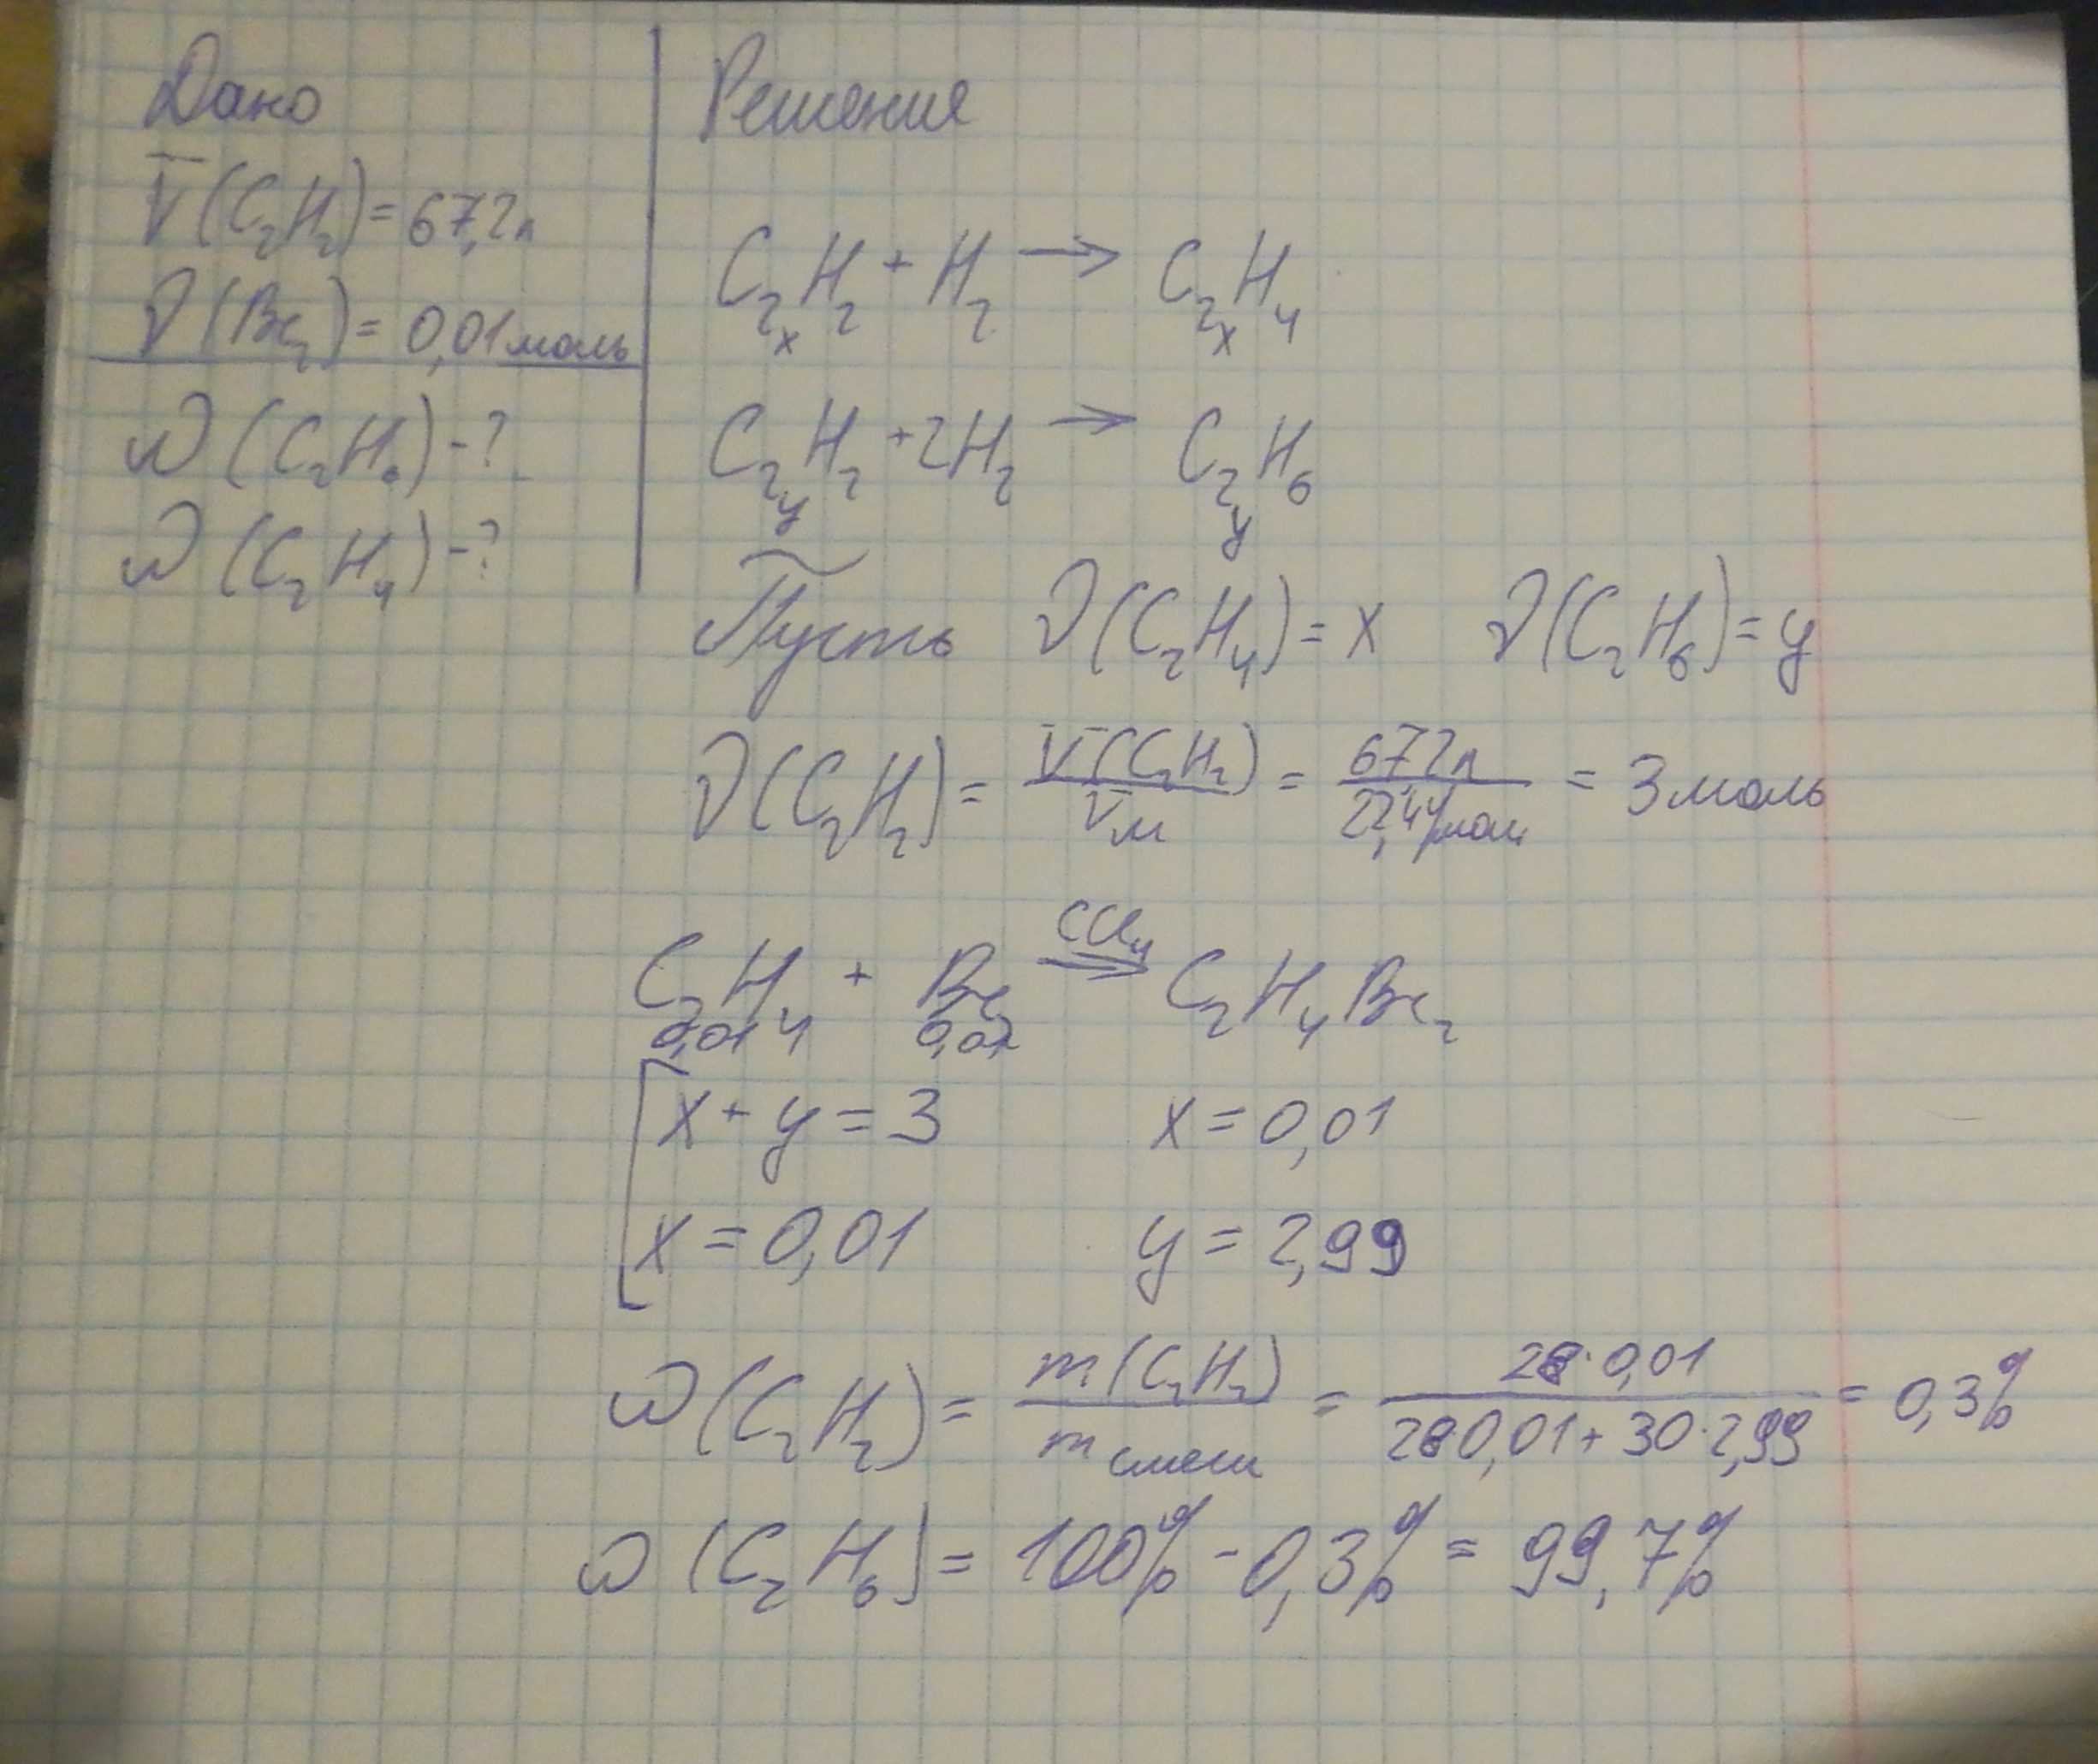 Дано
V(C₂H₂)=67,2л
ν(Br₂)=0,01моль
ω(C₂H₆)-?
ω(C₂H₄)-?
Решение
C₂H₂ + H₂ → C₂H₄
x x
C₂H₂ + 2H₂ → C₂H₆
y y
Пусть ν(C₂H₄)=x ν(C₂H₆)=y
ν(C₂H₂) = V(C₂H₂)/Vм = 67,2л/22,4л/моль = 3моль
CCl₄
C₂H₄ + Br₂ → C₂H₄Br₂
0,01 0,01
x + y = 3 x = 0,01
x = 0,01 y = 2,99
ω(C₂H₂) = m(C₂H₂)/m смеси = 28·0,01/28·0,01 + 30·2,99 = 0,3%
ω(C₂H₆) = 100% - 0,3% = 99,7%